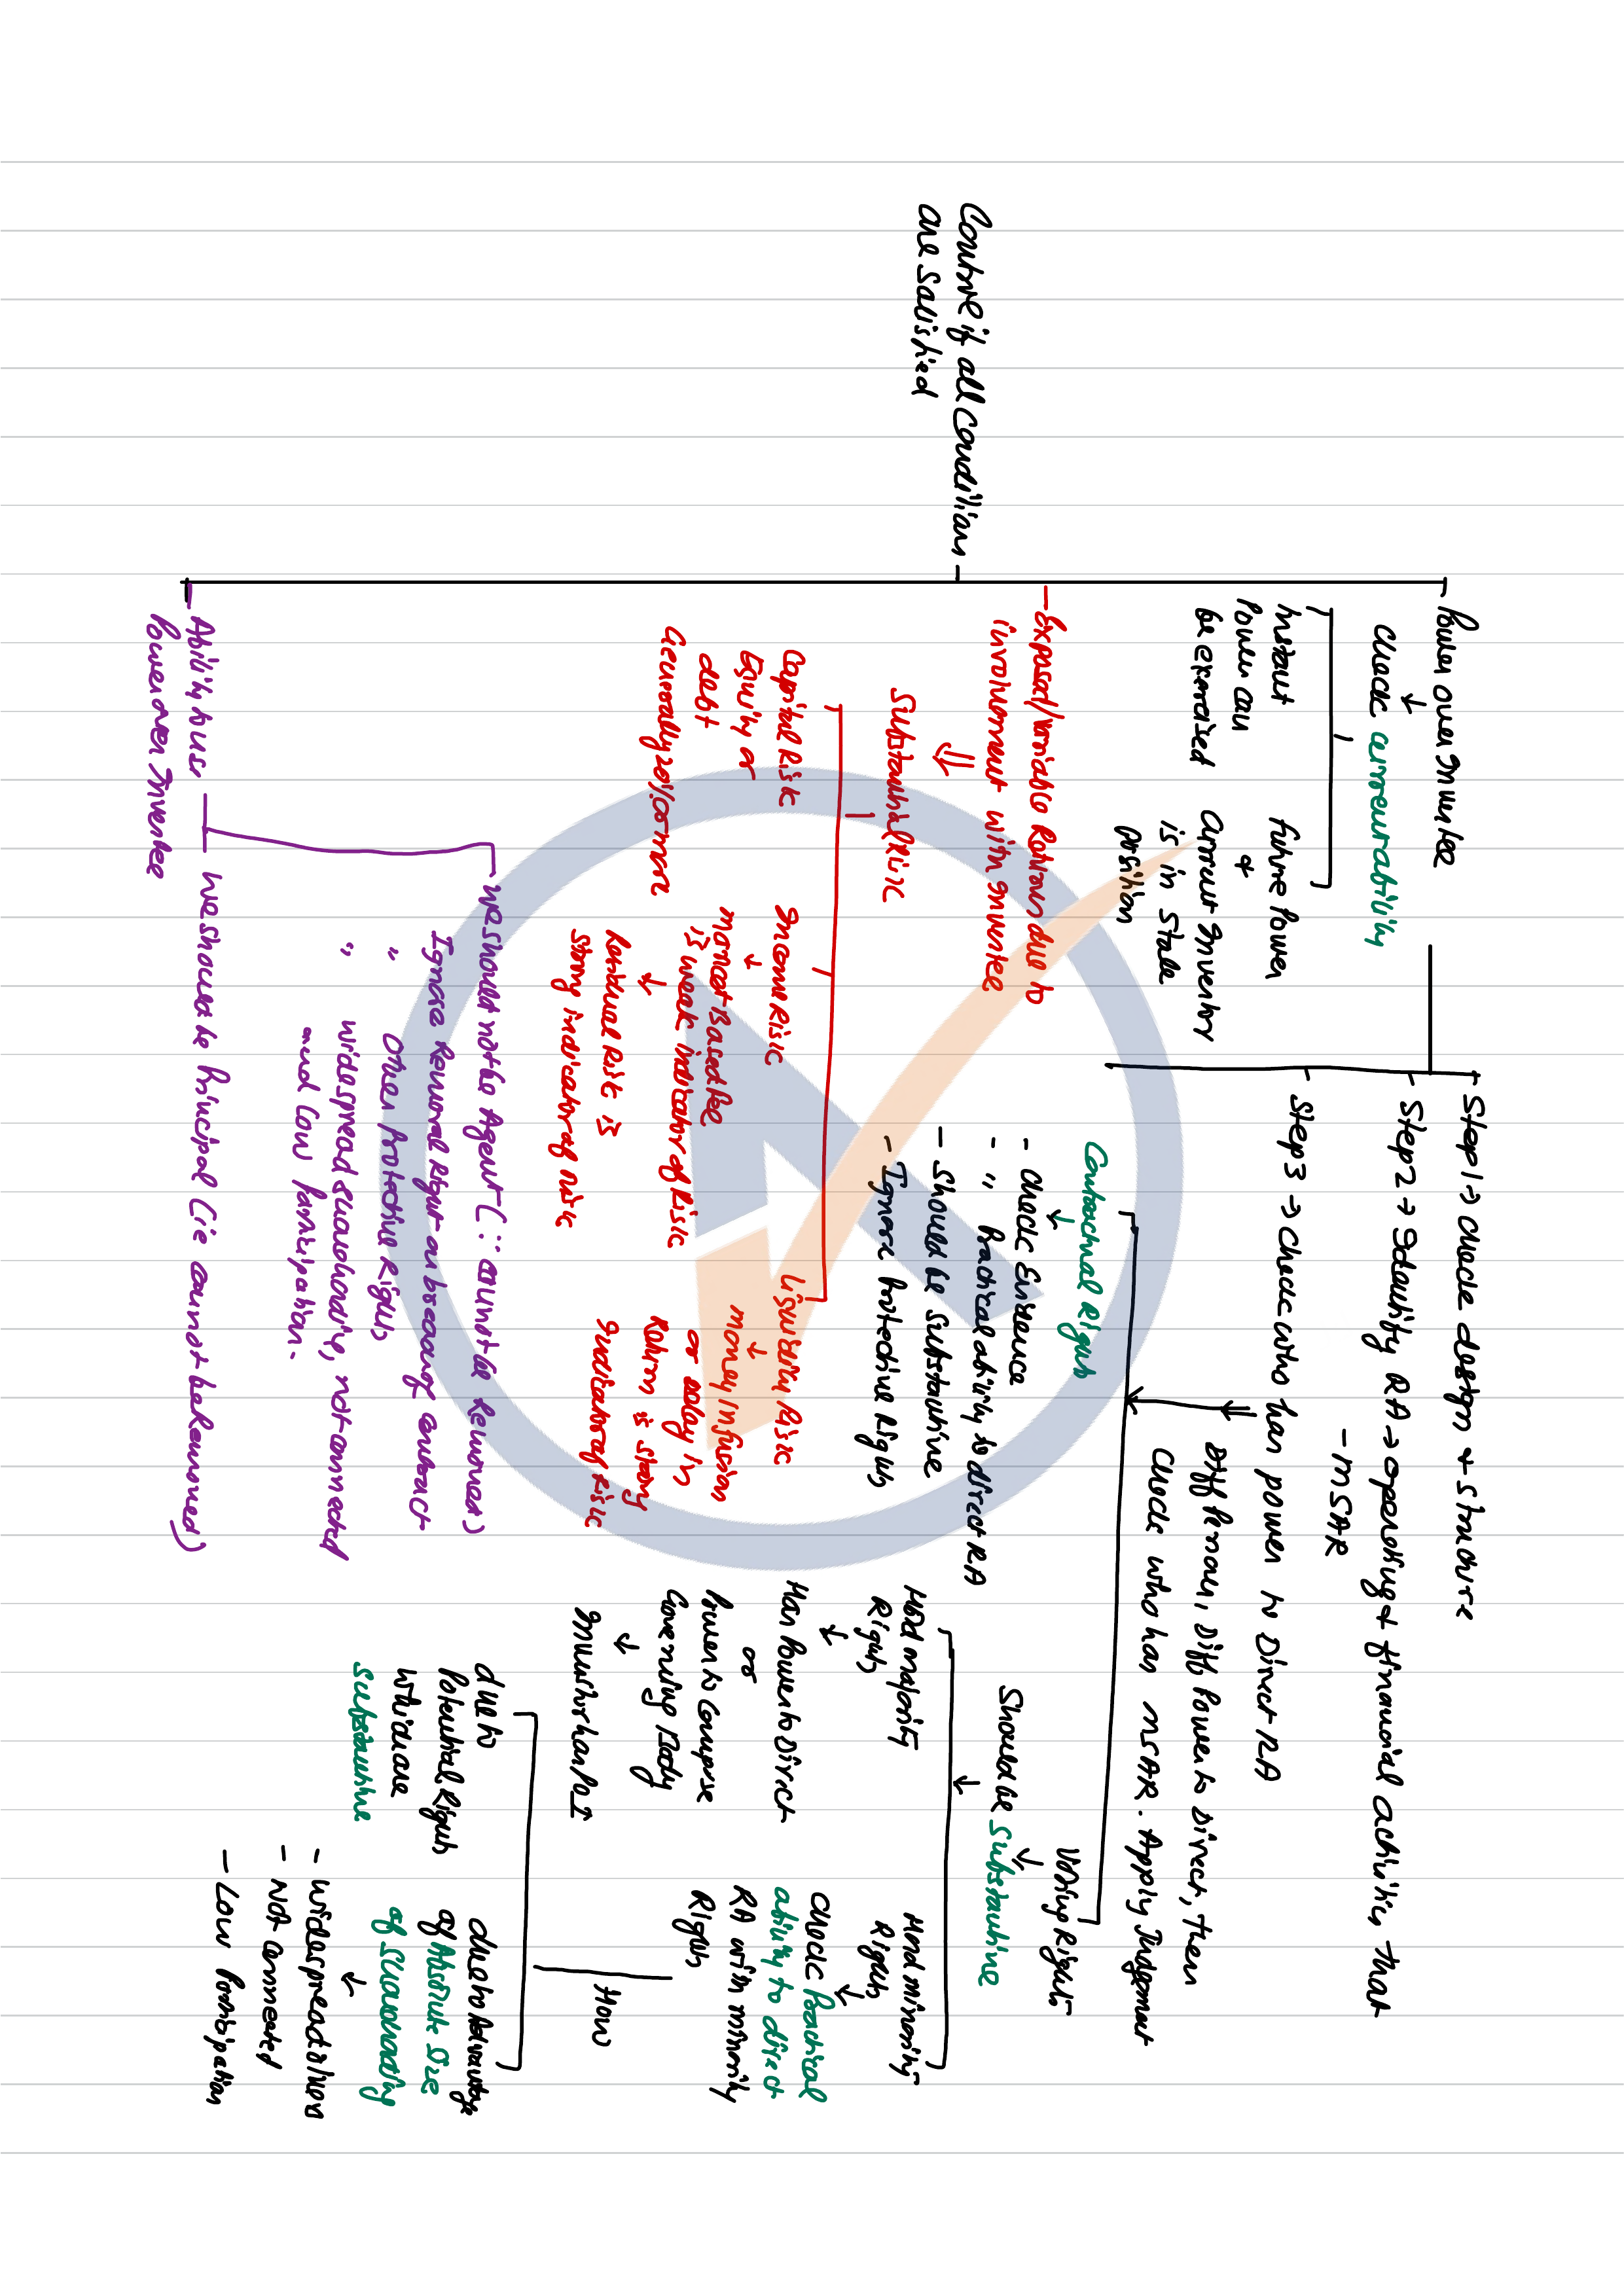 Control if all Condition
are satisfied
Power over Investee
↓
Check currentability
Instant
Power can
be exercised
future Power
+
Current Investor
is in Stable
Position
Step1 → Check design + structure
Step2 → Identify RA → operating + financial activities that
- MSAR
Step3 → Check who has power to Direct RA
Diff Person, Diff Power to Direct, then
Check who has MSAR. Apply Judgement
Contractual Rights
↓
- Check Existence
- " Practical ability to direct RA
- Should be substantive
- Ignore Protective Rights
Voting Rights
↓
Should be Substantive
↓
Hold majority
Rights
↓
Has Power to Direct
or
Power to Compose
Governing Body
↓
Investor has P.I
Hold minority
Rights
↓
Check Practical
ability to direct
RA with minority
Rights
How
due to
Potential Rights
which are
substantive
due to Advantage
of Absolute Size
of Shareholding
↓
- widespread others
- Not connected
- Low Participation
- Exposed/Variable Returns due to
involvement with Investee
⇓
Substantial Risk
Capital Risk
Equity or
debt
Generally 20% or more
Income Risk
↓
Market Based fee
is weak indicator of Risk
↓
Residual Risk is
strong indicator of risk
Liquidity Risk
↓
money infusion
or delay in
Return is strong
Indicator of Risk
- Ability to use
Power over Investee
we should not be Agent (∵ cannot be Removed)
Ignore Removal Right on breach of contract
" Other Protective Rights
" widespread shareholding, not connected
and low participation.
we should be Principal (ie cannot be Removed)